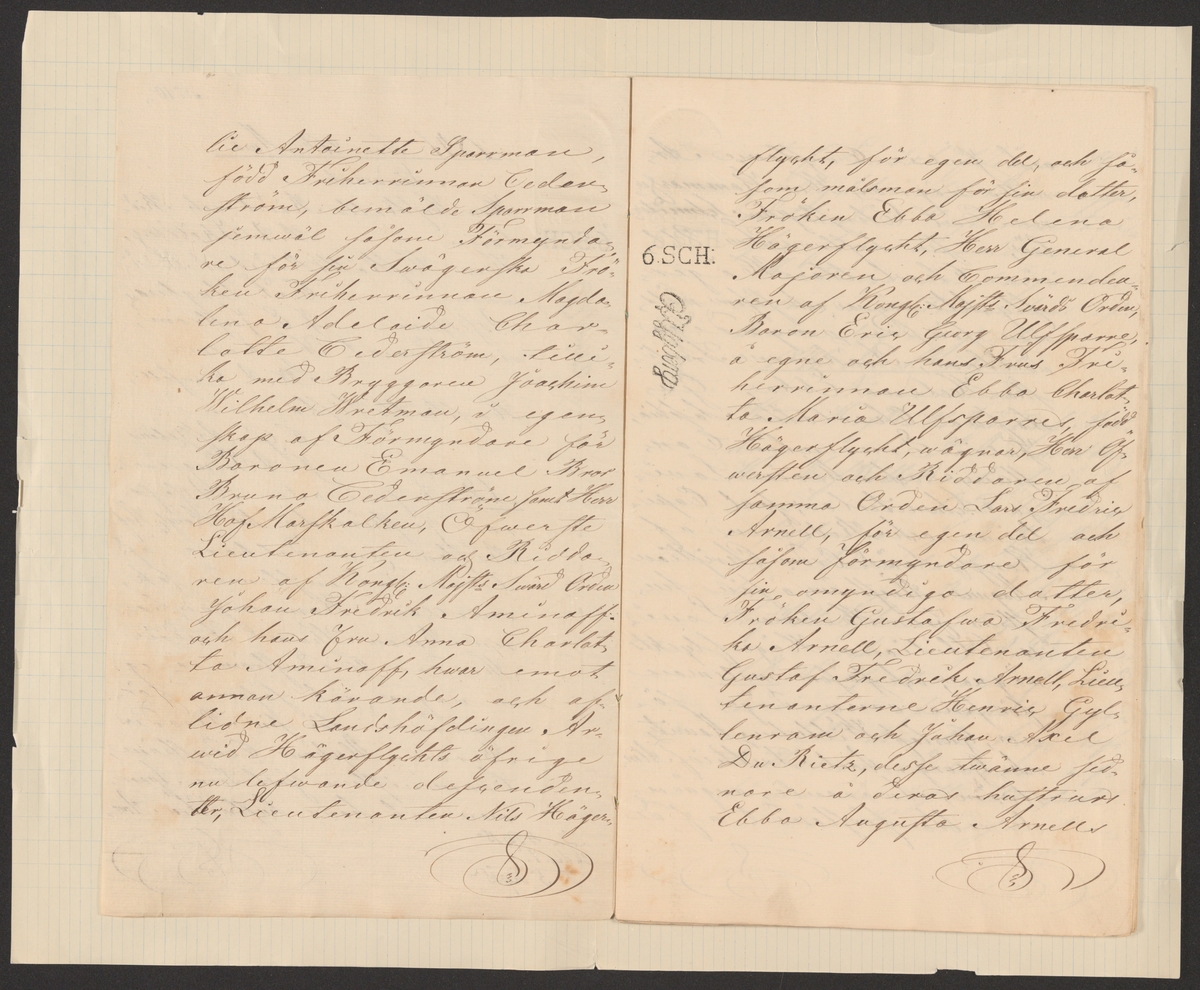 lie Antoinette Sparrman,
född Friherrinnan Ceder-
ström, bemälde Sparrman
jemwäl såsom Förmynda-
re för sin Swägerska Frö-
ken Friherrinnan Magda-
lena Adelaide Char-
lotte Cederström, tilli-
ka med Bryggaren Joachim
Wilhelm Wretman, i egen-
skap af Förmyndare för
Baronen Emanuel Bror
Bruno Cederström, samt Herr
HofMarskalken, Öfwerste
Lieutenanten och Ridda-
ren af Kongl: Majsts Swärd Orden
Johan Fredrik Aminoff
och hans fru Anna Charlot-
ta Aminoff, hwar emot
annan kärande, och af-
lidne Landshöfdingen Ar-
wid Hägerflychts öfrige
nu lefwande descenden-
ter, Lieutenanten Nils Häger-
flycht, för egen del, och så-
som målsman för sin dotter,
Fröken Ebba Helena
Hägerflycht, Herr General
6.SCH:
Majoren och Commendeu-
ren af Kongl: Majsts Swärds Orden,
Baron Eric Georg Ulfsparre,
å egne och hans Frus Fri-
herrinnan Ebba Charlot-
ta Maria Ulfsparres, född
Hägerflycht, wägnar, Herr Öf-
wersten och Riddaren af
samma Orden Lars Fredric
Arnell, för egen del och
såsom förmyndare för
sin omyndiga dotter,
Fröken Gustafwa Fredri-
ka Arnell, Lieutenanten
Gustaf Fredrik Arnell, Lieu-
tenanterne Henric Gyl-
lenram och Johan Axel
Du Rietz, desse twänne sed-
nare å deras hustrurs
Ebba Augusta Arnells